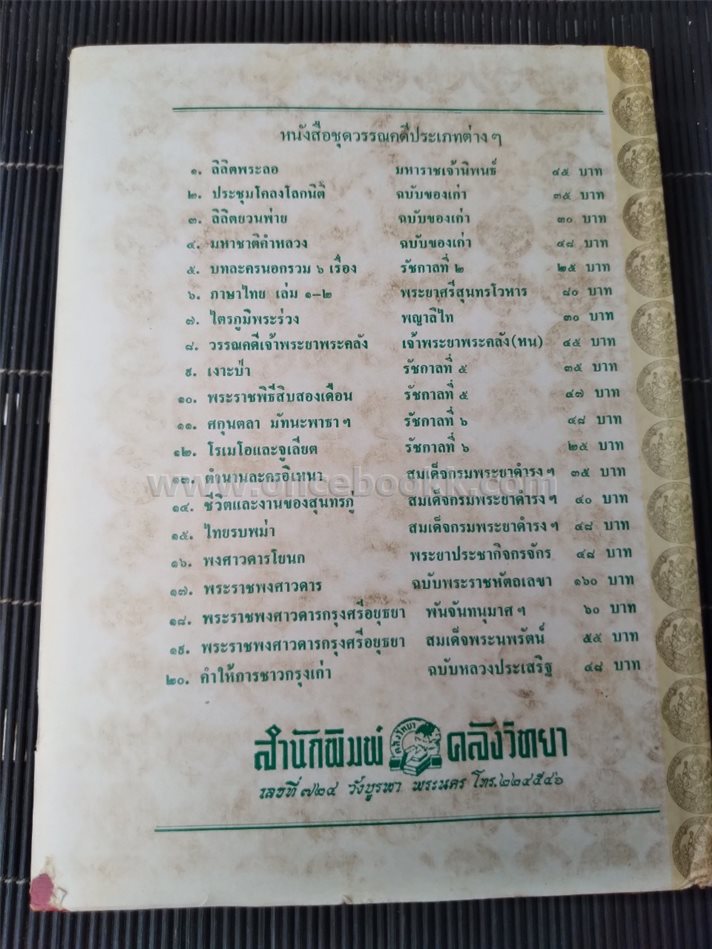 หนังสือชุดวรรณคดีประเภทต่าง ๆ
๑. ลิลิตพระลอ มหาราชเจ้านิพนธ์ ๔๕ บาท
๒. ประชุมโคลงโลกนิติ ฉบับของเก่า ๓๕ บาท
๓. ลิลิตยวนพ่าย ฉบับของเก่า ๓๐ บาท
๔. มหาชาติคำหลวง ฉบับของเก่า ๔๘ บาท
๕. บทละครนอกรวม ๖ เรื่อง รัชกาลที่ ๒ ๒๕ บาท
๖. ภาษาไทย เล่ม ๑–๒ พระยาศรีสุนทรโวหาร ๘๐ บาท
๗. ไตรภูมิพระร่วง พญาลิไท ๓๐ บาท
๘. วรรณคดีเจ้าพระยาพระคลัง เจ้าพระยาพระคลัง(หน) ๔๕ บาท
๙. เงาะป่า รัชกาลที่ ๕ ๓๕ บาท
๑๐. พระราชพิธีสิบสองเดือน รัชกาลที่ ๕ ๔๗ บาท
๑๑. ศกุนตลา มัทนะพาธา ฯ รัชกาลที่ ๖ ๔๘ บาท
๑๒. โรเมโอและจูเลียต รัชกาลที่ ๖ ๒๕ บาท
๑๓. ตำนานละครอิเหนา สมเด็จกรมพระยาดำรง ฯ ๓๕ บาท
๑๔. ชีวิตและงานของสุนทรภู่ สมเด็จกรมพระยาดำรง ฯ ๔๐ บาท
๑๕. ไทยรบพม่า สมเด็จกรมพระยาดำรง ฯ ๔๘ บาท
๑๖. พงศาวดารโยนก พระยาประชากิจกรจักร ๔๘ บาท
๑๗. พระราชพงศาวดาร ฉบับพระราชหัตถเลขา ๑๖๐ บาท
๑๘. พระราชพงศาวดารกรุงศรีอยุธยา พันจันทนุมาศ ฯ ๖๐ บาท
๑๙. พระราชพงศาวดารกรุงศรีอยุธยา สมเด็จพระนพรัตน์ ๕๕ บาท
๒๐. คำให้การชาวกรุงเก่า ฉบับหลวงประเสริฐ ๔๘ บาท
สำนักพิมพ์ คลังวิทยา คลังวิทยา
เลขที่ ๗๒๔ วังบูรพา พระนคร โทร. ๒๒๔๕๔๖